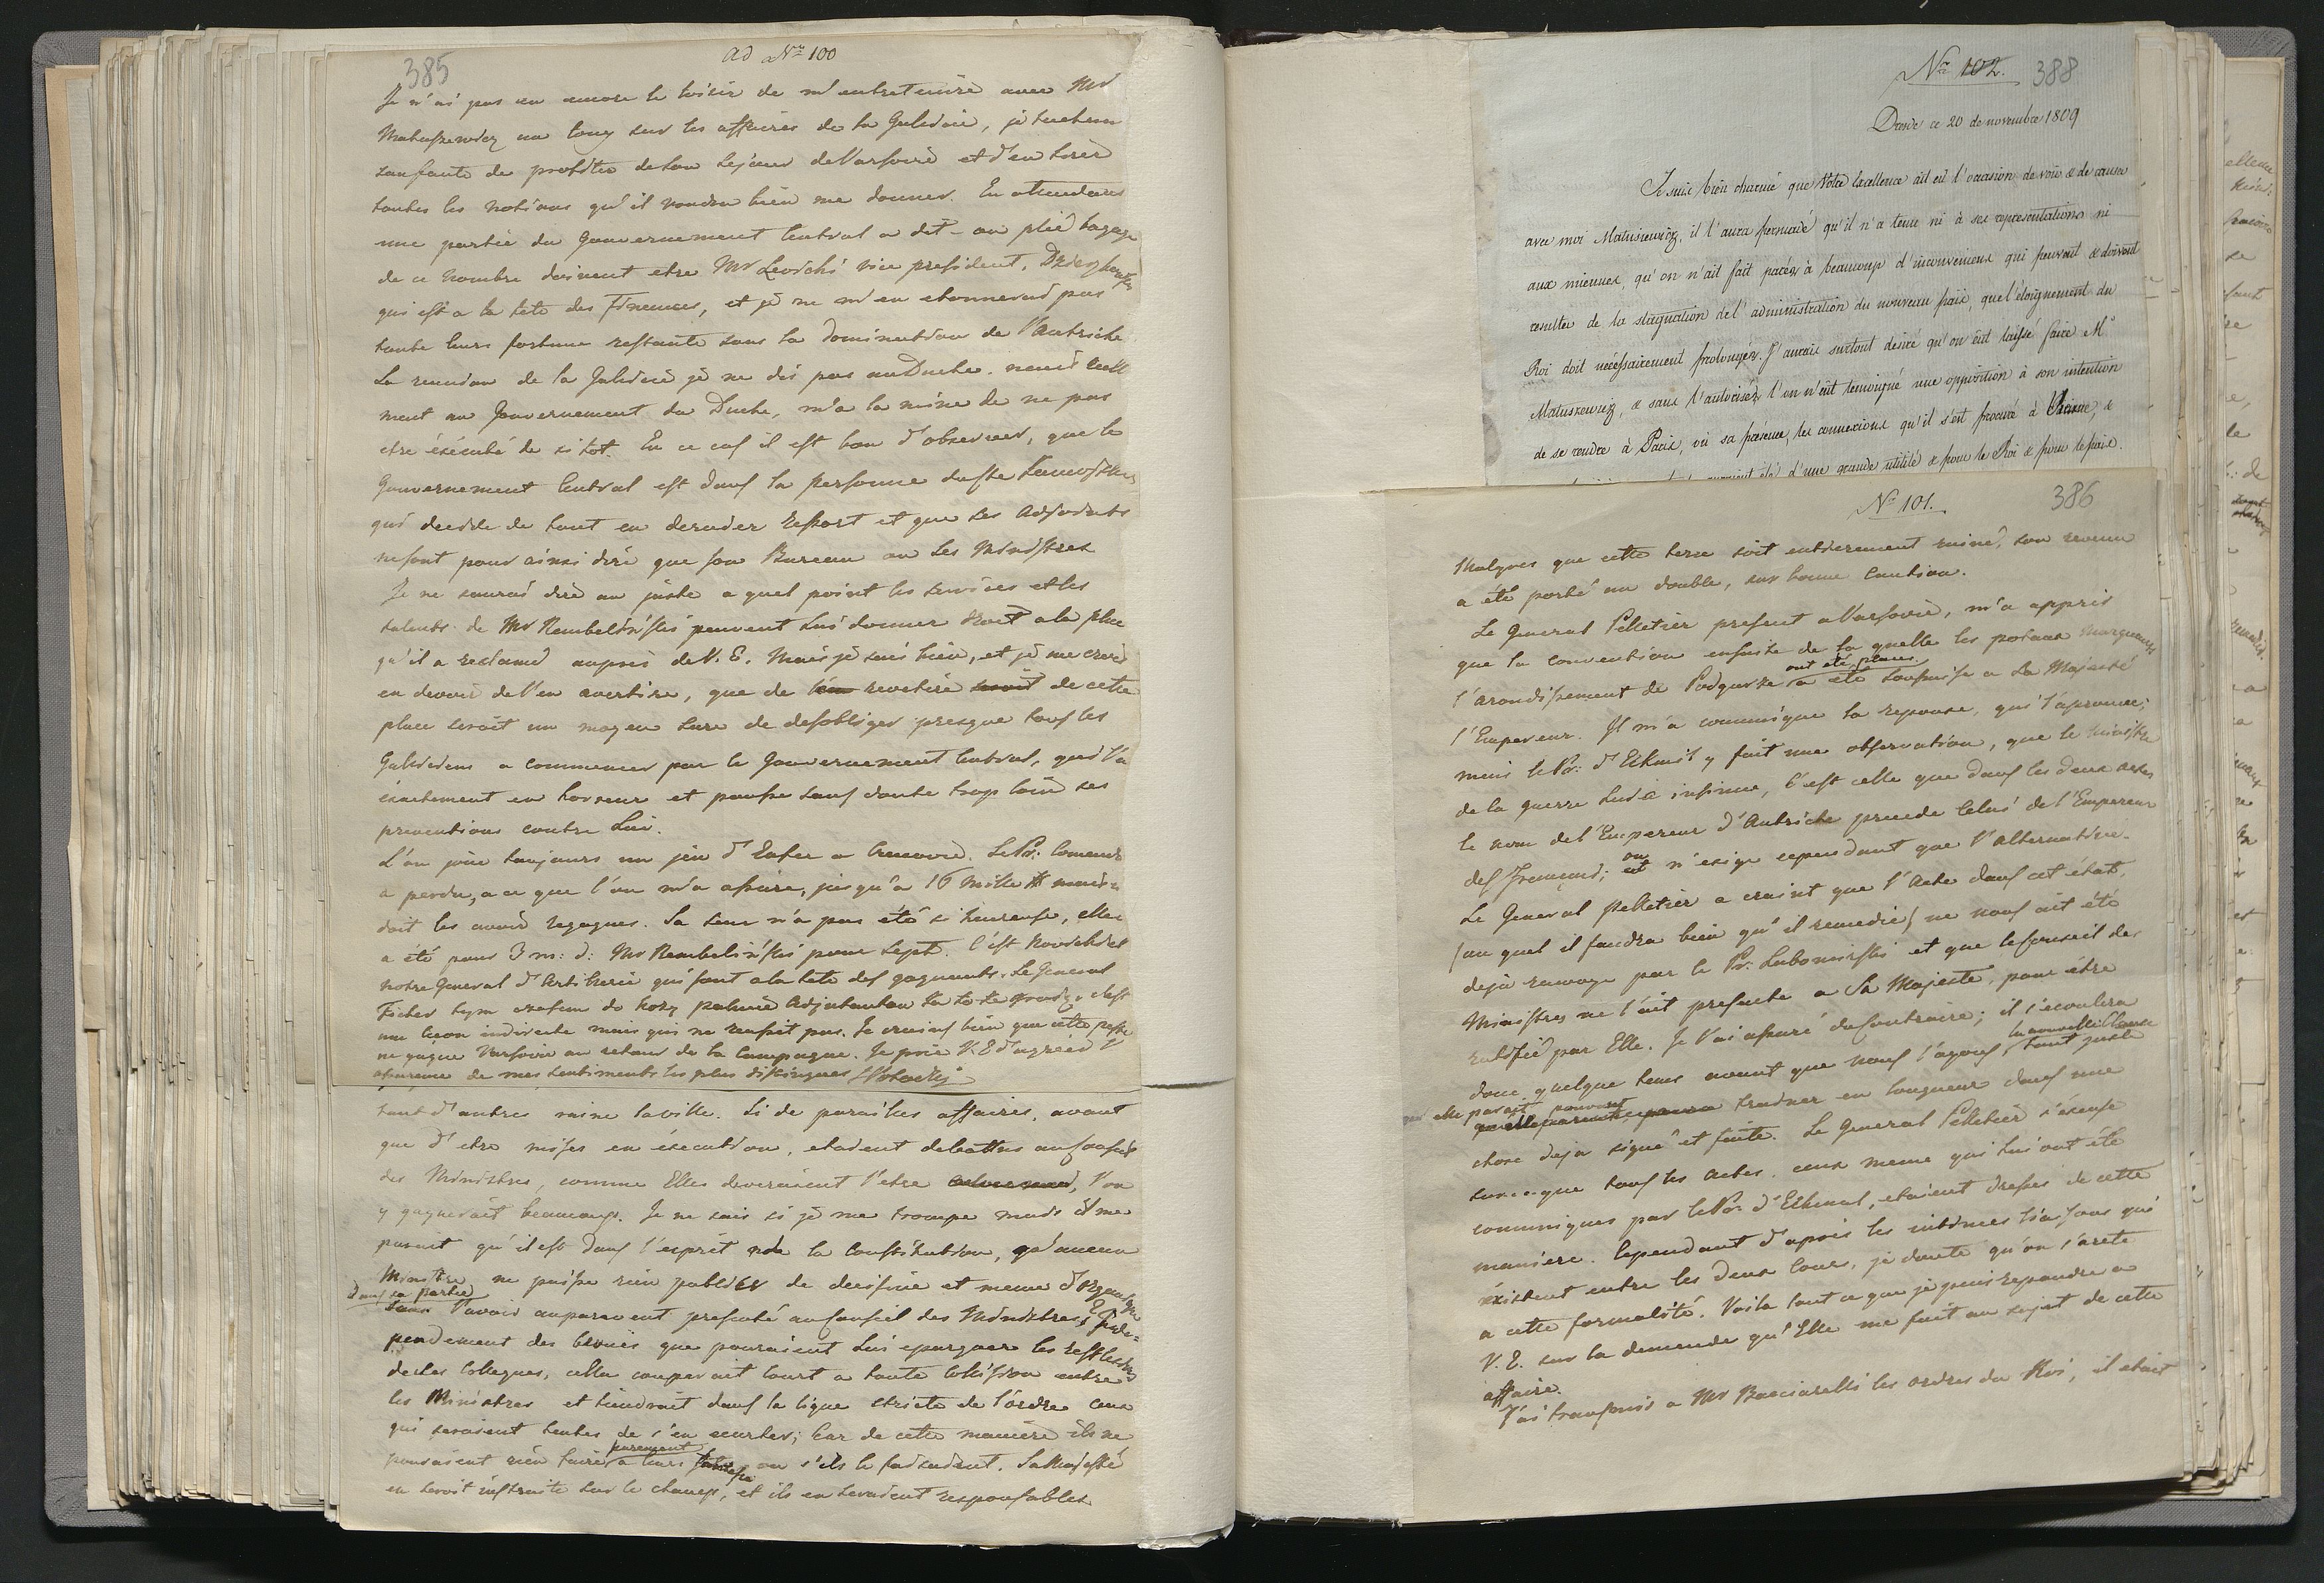 385
ad Nro 100
Je n'ai pas eu encore le loisir de m'entretenire avec Mr
Matuszewicz au long sur les affaires de la Galicie, je tacherai
sans faute de profiter de son sejour de Varsovie et d'en tirer
toutes les notions qu'il voudra bien me donner. En attendant
une partie du Gouvernement Central a dit-on plié bagage
de ce nombre doivent etre Mr Lewicki vice president,
qui est a la tete des Finances, et je ne m'en etonnerai pas
toute leurs fortune restante sous la domination de l'Autriche
La reunion de la Galicie je ne dis pas au Duche. mais reelle
ment au Gouvernement du Duche, m'a la mine de ne pas
etre éxécuté de sitot. En ce cas il est bon d'observer, que le
Gouvernement Central est dans la personne du
qui decide de tout en dernier Ressort et que les Adjoints
ne sont pour ainsi dire que son Bureau ou Ses Ministres
Je ne saurai dire au juste a quel point les services et les
talents de Mr Rembeliński peuvent lui donner droit a la place
qu'il a reclamé aupres de V. E. Mais je sais bien, et je me crois
en devoir de l'en avertire, que de revetire de cette
place seroit un moyen sure de desobliger presque tous les
Galiciens a commencer par le Gouvernement Central, qui l'a
éxactement en horreur et pousse sans doute trop loin ses
preventions contre Lui.
L'on joue toujours un jeu d'Enfer a Cracovie. Le Pr:
a perdu, a ce que l'on m'a assuré, jusqu'a 16 mille # mais il
doit les avoir regagnes. Sa soeur n'a pas été si heureuse, elle
a été pour 3 m: d: Mr Rembelinski pour sept. C'est
notre General d'Artillerie qui sont a la tete des gagnants. Le General
Fiszer tym czasem do kozy palnie Adjutantow
une lecon indirecte mais qui ne reussit pas. Je crains bien que cette peste
ne gagne Varsovie au retour de la Campagne. Je prie V. E. d'agréer l'
assurance de mes sentiments les plus distingues SPotocki
tant d'autres ruine la ville. Si de pareilles affaires, avant
que d'etre mises en éxecution, etaient debattus au Conseil
des Ministres, comme Elles deveraient l'etre, l'on
y gagnerait beaucoup. Je ne sais si je me trompe mais il me
parait qu'il est dans l'esprit de la Constitution, qu'aucun
Ministre ne puisse rien publier de decisive et meme
dans sa partie
sans l'avoir auparavent presenté au Conseil des Ministres; Inde-
pendement des bevues que pouraient Lui epargner les reflexions
de Ses Collegues, cella couperait court a toute Collision entre
les Ministres et tiendrait dans la ligne stricte de l'ordre ceux
qui seraient tentes de s'en ecarter; Car de cette maniere ils ne
purement
pouraient rien faire a leurs ou s'ils le fesaient. Sa Majesté
en seroit instruite sur le champ, et ils en seraient responsables
Nro 102. 388
Dresde ce 20 de novembre 1809
Je suis bien charmé que Votre Excellence ait eû l'occasion de voir & de causer
avec moi Matuszewicz, il l'aura persuadé qu'il n'a tenu ni à ses representations ni
aux miennes, qu'on n'ait fait parér à beaucoup d'inconveniens qui peuvent & doivent
resulter de la stagnation de l'administration du nouveau païs, que l'éloignement du
Roi doit nécessairement prolonger. J'aurais surtout desiré qu'on eût laissé faire Mr
Matuszewicz, & sans l'autoriser l'on n'eût temoigné une opposition à son intention
de se rendre à Paris, où sa présence, les connexions qu'il s'est procuré à Vienne, &
auroient été d'une grande utilité & pour le Roi & pour le païs.
Nro 101. 386
Malgres que cette terre soit entierement ruiné, son revenu
a été porté au double, sur bonne Caution.
Le General Pelletier present a Varsovie, m'a appris
que la convention ensuite de la quelle les poteaux marquants
ont été places
l'arondissement de Podgurze a été soumise a Sa Majesté
l'Empereur. Il m'a communiqué la reponse, qui l'aprouve;
mais le Pr: d'Ekmül y fait une observation, que le Ministre
de la guerre Lui a insinue, C'est celle que dans les deux actes
le nom de l'Empereur d'Autriche precede Celui de l'Empereur
des Français; on n'exige cependant que l'alternative.
Le General Pelletier a craint que l'Acte dans cet état,
(au quel il faudra bien qu'il remedie) ne nous ait été
deja envoye par le Pr: Lubomirski et que le Conseil des
Ministres ne l'ait presente a Sa Majesté, pour étre
ratifié par Elle. Je l'ai assuré du Contraire; il s'ecoulera
la nouvelle Clause
donc quelque tems avant que nous l'ayons, tout juste
elle parait pouvant
trainer en longueur dans une
chose deja signé et faite. Le General Pelletier s'excuse
sur ce que tous les actes, ceux meme qui Lui ont été
comuniques par le Pr: d'Ekmul, etaient dresses de cette
maniere. Cependant d'apres les intimes liaisons qui
éxistent entre les deux Cours, je doute qu'on s'arete
a cette formalité. Voila tout ce que je puis repondre a
V. E. sur la demende qu'Elle me fait au sujet de cette
affaire.
J'ai transmis a Mr Bacciarelli les ordres du Roi, il etait